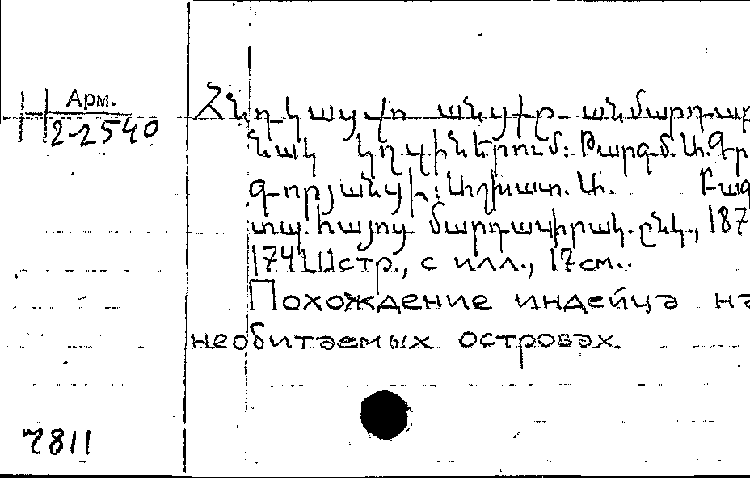 Арм.
2-2540
Հնդկացվո անցքը անմարդաբ
նակ կղզիներում: Թարգմ. Ա. Գրի
գորյանցի: Աշխատ. Ա. Բագ
տպ. հայոց մարդասիրակ. ընկ., 187
174 IIIстр., с илл., 17см.
Похождение индейца на
необитаемых островах.
7811